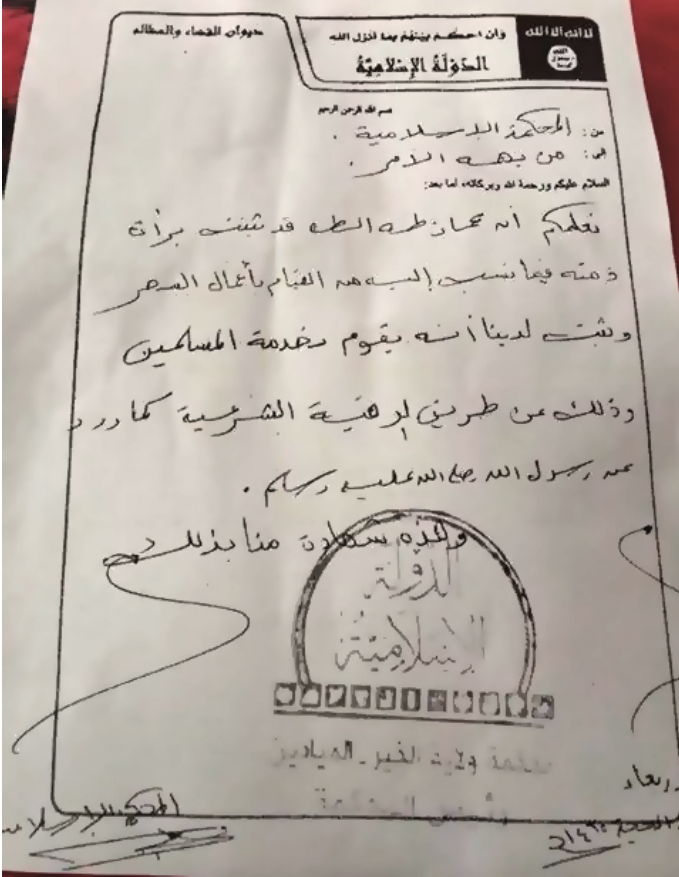 ديوان القضاء والمظالم
وان احكم بينهم بما انزل الله
الدَّوْلَةُ الإِسْلَامِيَّةُ
لا اله الا الله
الله
رسول
محمد
بسم الله الرحمن الرحيم
من: المحكمة الإسلامية .
الى: من يهمه الأمر .
السلام عليكم ورحمة الله وبركاته، أما بعد:
نعلمكم أنه طه قد ثبتت برأت
ذمته فيما نسب إليه من القيام بأعمال السحر
وثبت لدينا أنه يقوم بخدمة المسلمين
وذلك عن طريق الرقية الشرعية كما ورد
عن رسول الله صلى الله عليه وسلم .
وهذه شهادة منا بذلك
الدولة
الإسلامية
ولاية الخير - الميادين
المحكمة الإسلامية